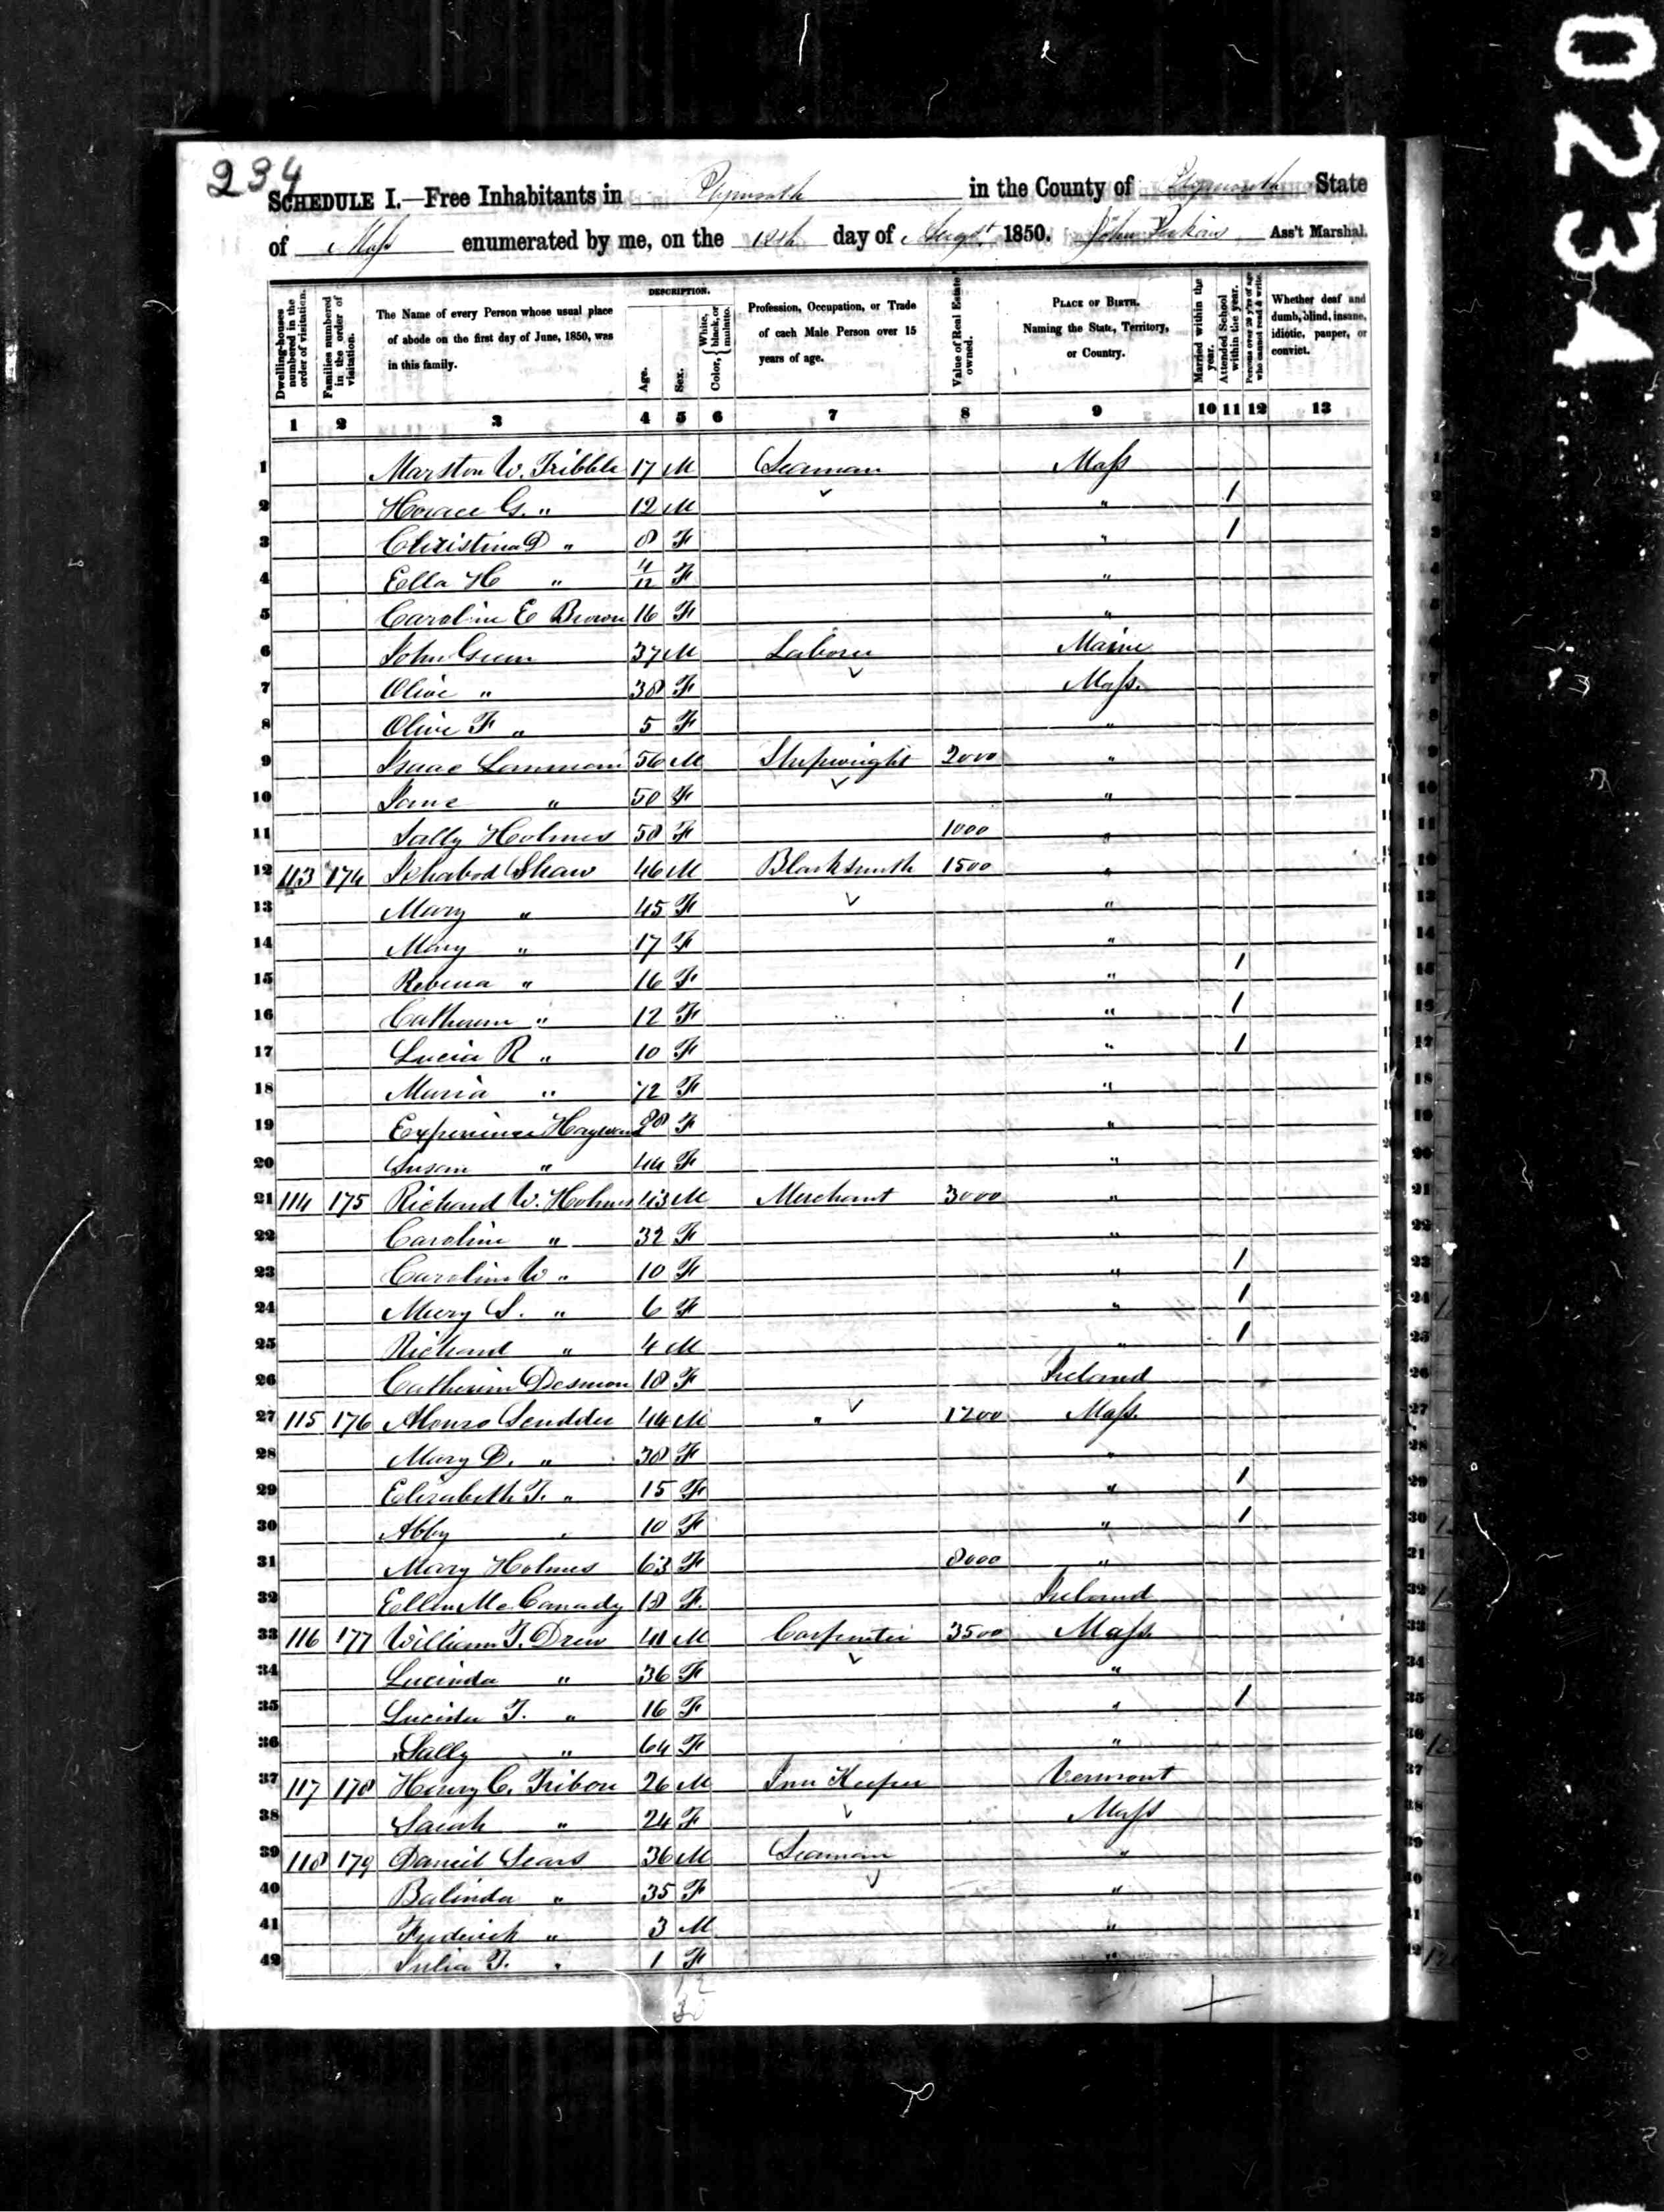 0234
234
SCHEDULE I.—Free Inhabitants in Plymouth in the County of Plymouth State
of Mass enumerated by me, on the 12th day of Augst 1850. John Perkins Ass't Marshal.
Dwelling-houses numbered in the order of visitation.
Families numbered in the order of visitation.
The Name of every Person whose usual place of abode on the first day of June, 1850, was in this family.
DESCRIPTION.
Age.
Sex.
Color, White, black, or mulatto.
Profession, Occupation, or Trade of each Male Person over 15 years of age.
Value of Real Estate owned.
PLACE OF BIRTH. Naming the State, Territory, or Country.
Married within the year.
Attended School within the year.
Persons over 20 y'rs of age who cannot read & write.
Whether deaf and dumb, blind, insane, idiotic, pauper, or convict.
1 2 3 4 5 6 7 8 9 10 11 12 13
1 Marston W. Tribble 17 M Seaman Mass
2 Horace G. " 12 M " 1
3 Christina D " 8 F " 1
4 Ella H " 4/12 F "
5 Caroline E Brown 16 F "
6 John Green 37 M Laborer Maine
7 Olive " 38 F Mass.
8 Olive F " 5 F "
9 Isaac Lanman 56 M Shipwright 2000 "
10 Jane " 50 F "
11 Sally Holmes 58 F 1000 "
12 113 174 Ichabod Shaw 46 M Blacksmith 1500 "
13 Mary " 45 F "
14 Mary " 17 F "
15 Rebecca " 16 F " 1
16 Catherine " 12 F " 1
17 Lucia R " 10 F " 1
18 Maria " 72 F "
19 Experience Hayward 88 F "
20 Susan " 44 F "
21 114 175 Richard W. Holmes 43 M Merchant 3000 "
22 Caroline " 32 F "
23 Caroline W " 10 F " 1
24 Mary S. " 6 F " 1
25 Richard " 4 M " 1
26 Catherine Desmon 18 F Ireland
27 115 176 Alonzo Scudder 44 M " 1200 Mass.
28 Mary D. " 38 F "
29 Elizabeth T. " 15 F " 1
30 Abby " 10 F " 1
31 Mary Holmes 63 F 8000 "
32 Ellen McCanady 18 F. Ireland
33 116 177 William T. Drew 41 M Carpenter 3500 Mass
34 Lucinda " 36 F "
35 Lucinda T. " 16 F " 1
36 Sally " 64 F "
37 117 178 Henry C. Tribou 26 M Inn Keeper Vermont
38 Sarah " 24 F Mass
39 118 179 Daniel Sears 36 M Seaman "
40 Balinda " 35 F "
41 Frederick " 3 M "
42 Julia T. " 1 F "